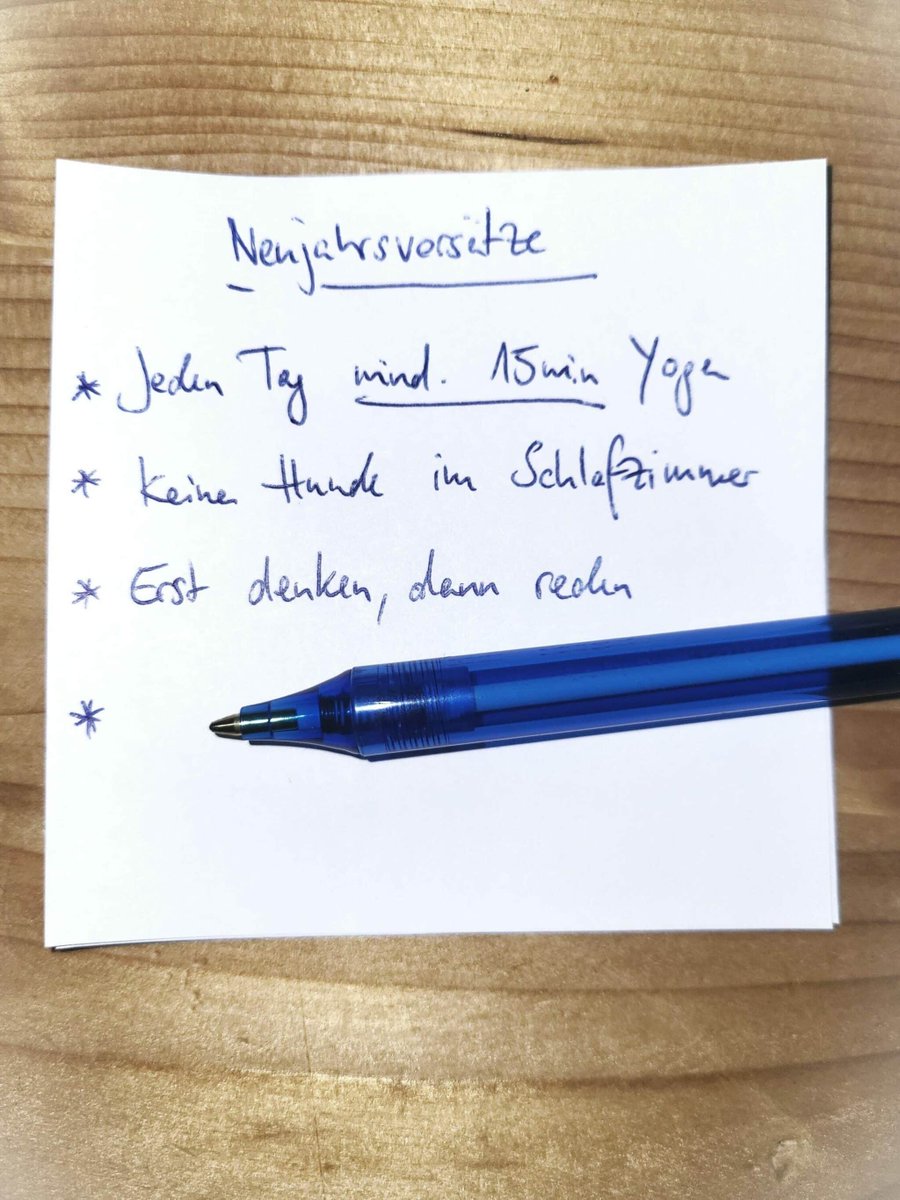 Neujahrsvorsätze
* Jeden Tag mind. 15min Yoga
* Keine Hunde im Schlafzimmer
* Erst denken, dann reden
*